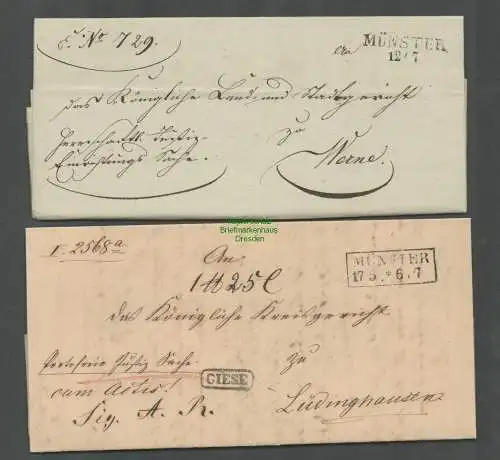 E. No 729.
An
MÜNSTER
12/7
das Königliche Land und Stadtgericht
Herrschaftl. Justiz
zu
Einrichtungs Sache.
Werne.
Briefmarkenhaus
Dresden
I. 2568a
An
MÜNSTER
17 5 * 6-7
das Königliche Kreisgericht
Portofreie Justiz Sache.
zu
cum Actis!
GIESE
Lüdinghausen
Sig. A. R.